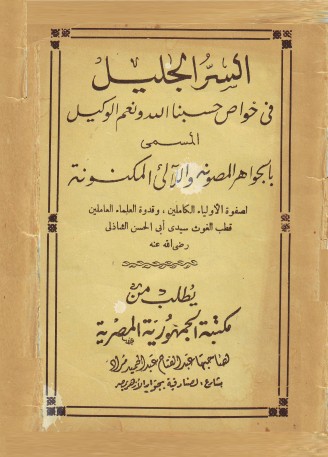 السر الجليل
في خواص حسبنا الله ونعم الوكيل
المسمى
بالجواهر المصونه واللآلئ المكنونة
لصفوة الأولياء الكاملين ، وقدوة العلماء العاملين
قطب الغوث سيدى أبى الحسن الشاذلى
رضى الله عنه
يطلب من
مكتبة الجمهورية المصرية
لصاحبها عبد الفتاح عبد الحميد مراد
بشارع الصنادقية بجوار الأزهر بمصر